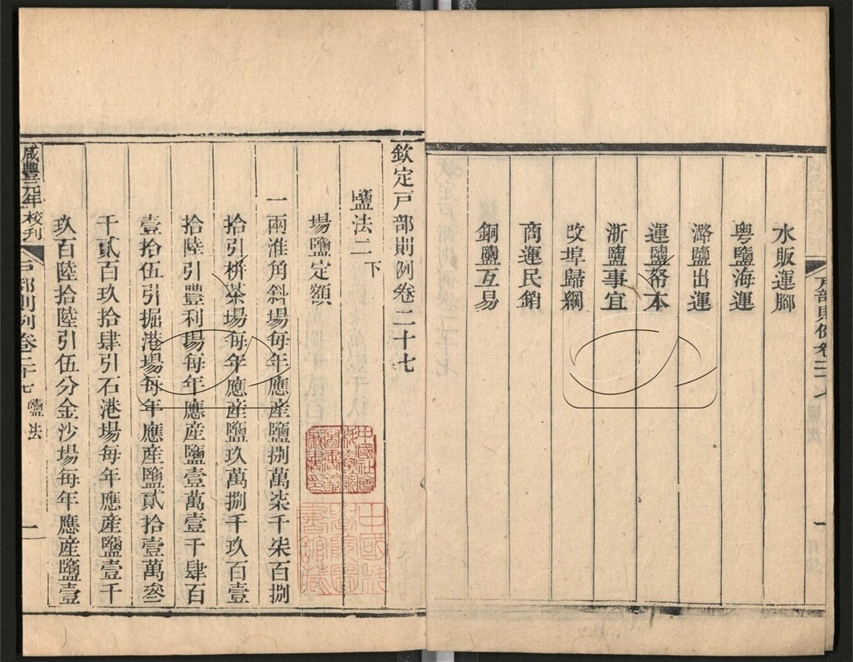 水販運腳
粵鹽海運
潞鹽出運
運鹽帑本
浙鹽事宜
改埠歸綱
商運民銷
銅鹽互易
欽定戶部則例卷二十七
鹽法二下
場鹽定額
一兩淮角斜場每年應產鹽捌萬柒千柒百捌
拾引栟茶場每年應產鹽玖萬捌千玖百壹
拾陸引豐利場每年應產鹽壹萬壹千肆百
壹拾伍引掘港場每年應產鹽貳拾壹萬叄
千貳百玖拾肆引石港場每年應產鹽壹千
玖百陸拾陸引伍分金沙場每年應產鹽壹
咸豐元年校刊
戶部則例卷二十七 鹽法
一